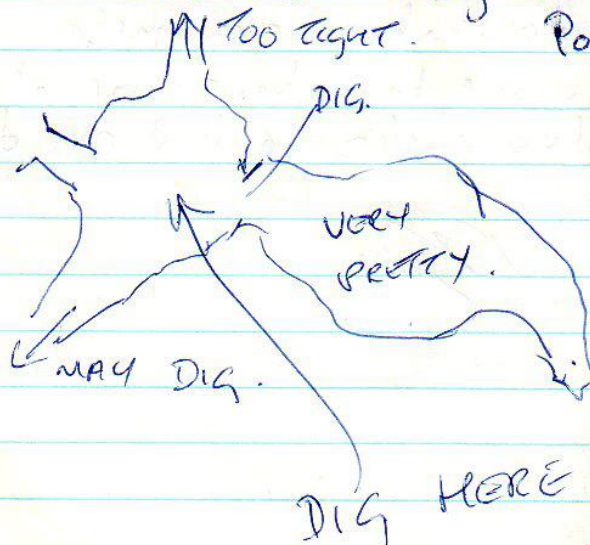 TOO TIGHT.
Po
DIG.
VERY
PRETTY.
MAY DIG.
DIG HERE